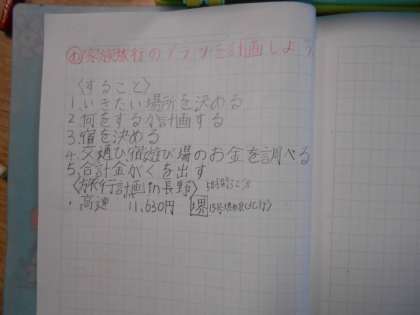 家族旅行のプランを計画しよう
〈すること〉
1.いきたい場所を決める
2.何をするか計画する
3.宿を決める
4.交通ひ宿遊び場のお金を調べる
5.合計金がくを出す
〈旅行計画in長野〉
・高速 11,630円 堺